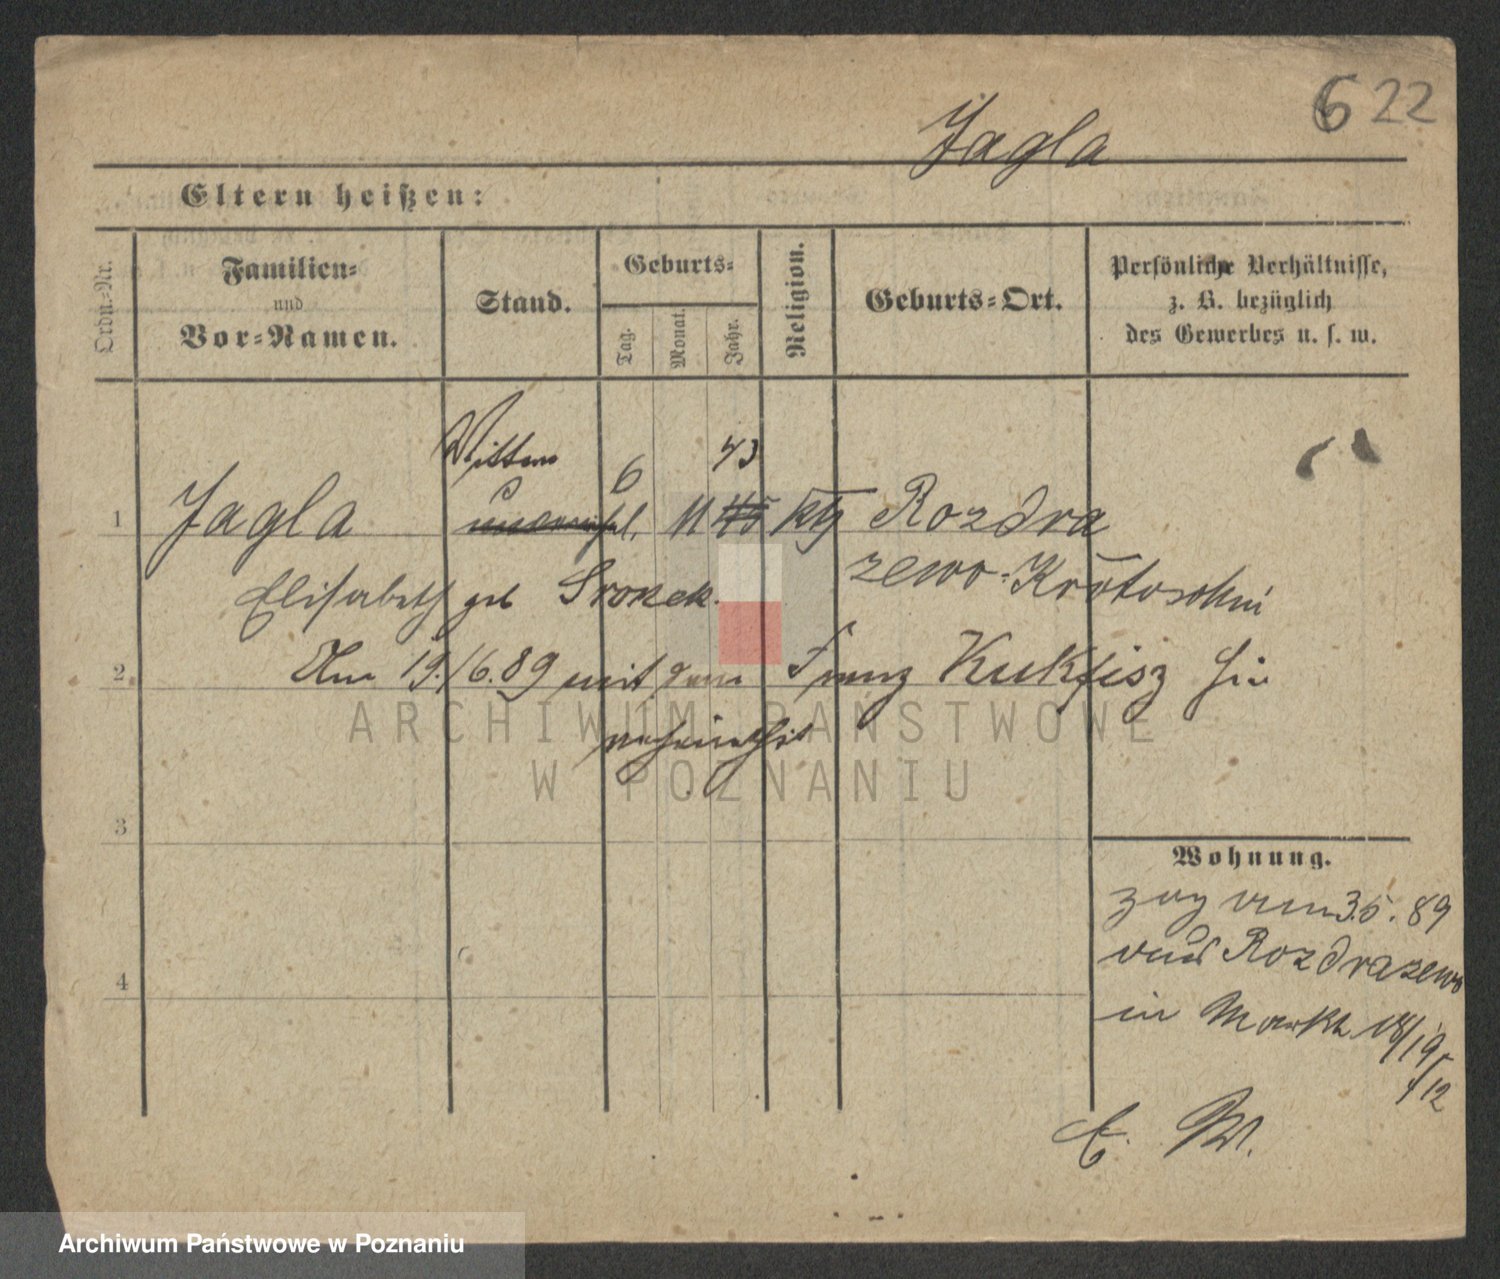 622
Jagla
Eltern heißen:
Ordn.-Nr.
Familien-
und
Vor-Namen.
Stand.
Geburts-
Tag.
Monat.
Jahr.
Religion.
Geburts-Ort.
Persönliche Verhältnisse,
z. B. bezüglich
des Gewerbes u. s. w.
Wittwe
6
43
1
Jagla
11
kth
Rozdra
zewo-Krotoschin
Elisabeth geb
2
Am 19./6. 89 mit dem Franz Kukfisz hier
verheirathet
ARCHIWUM PAŃSTWOWE
W POZNANIU
3
Wohnung.
zug vom 3.5. 89
aus Rozdrazewo
in Markt 18/19
/12
4
E. W.
Archiwum Państwowe w Poznaniu